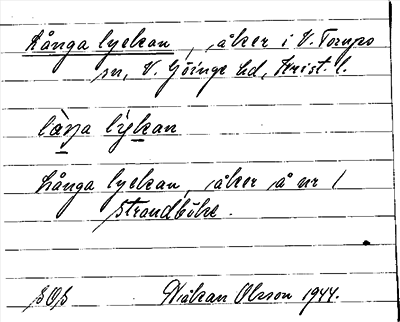 Långa lyckan, åker i V. Torups
sn, V. Göinge hd, Krist. l.
làŋa lỳkan
Långa lyckan, åker å nr 1
Strandböke.
SOS
Håkan Olsson 1944.